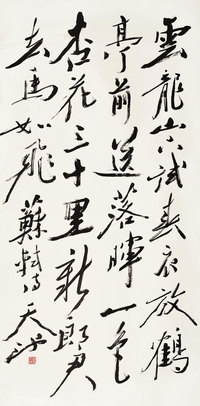 雲龍山下試春衣放鶴
亭前送落暉一色
杏花三十里新郎君
去馬如飛 蘇軾詩 天池